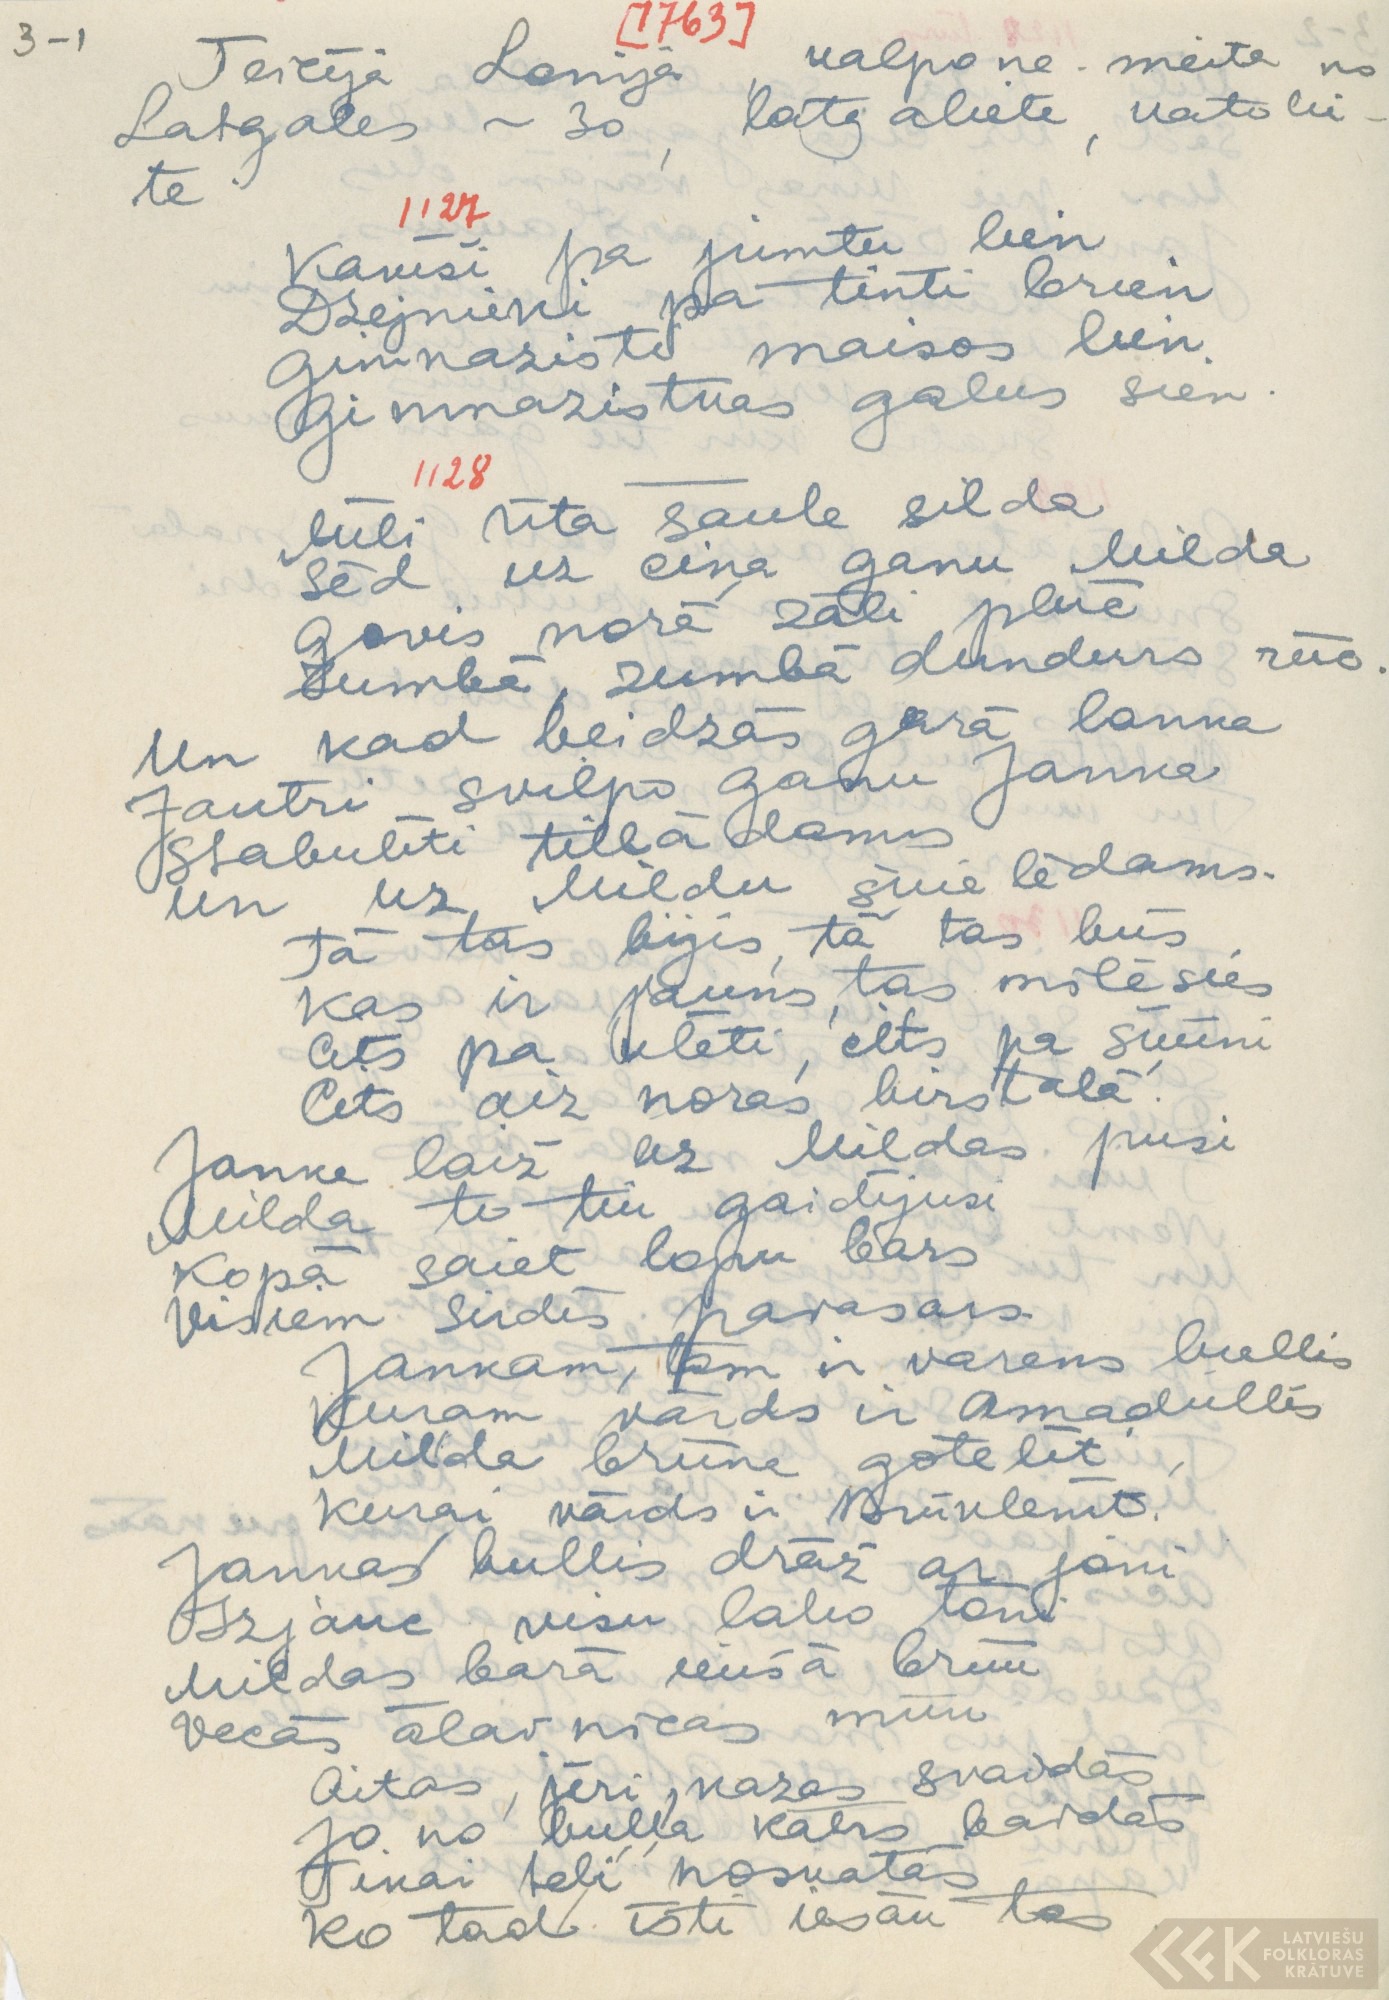 3-1
[1763]
Teicējā Lonijā, kalpone. meita no
Latgales ~ 30, latgaliete, katolie-
te.
1127
Kaķīši pa jumtu lien
Dzejnieki pa tinti brien
Ģimnazisti maisos lien.
Ģimnazistkas galus sien.
1128
Mīli rīta saule silda
Sēd uz ciņa ganu Milda
Govis norā, zāli plūc
Zumbā, zumbā dundurs rūc.
Un kad beidzās garā lanka
Jautri svilpo ganu Janka
Stabulēti tillādams
Un uz Mildu šķielēdams.
Tā tas bijis, tā tas būs
Kas ir jauns, tas mīlēsies
Cits pa klēti, cits pa šķūni
Cits aiz noras birstalā.
Janka laiž uz Mildas pusi
Milda to tik gaidījusi
Kopā saiet lopu bars
Visiem sirdīs pavasars.
Jankam, tam ir varens bullis
Kuram vārds ir Amadullis
Milda brūna gotelīt,
Kurai vārds ir Brūklenīt.
Jankas bullis drāž ar joni
Izjauc visu labo toni
Mildas barā iekšā brūk
Vecās ālavnicas mūk
Aitas, jēri, kazas svaidās
Jo no buļļa katrs baidās
Tikai teļi noskatās
Ko tad īsti iesāk tas
LATVIEŠU
FOLKLORAS
KRĀTUVE